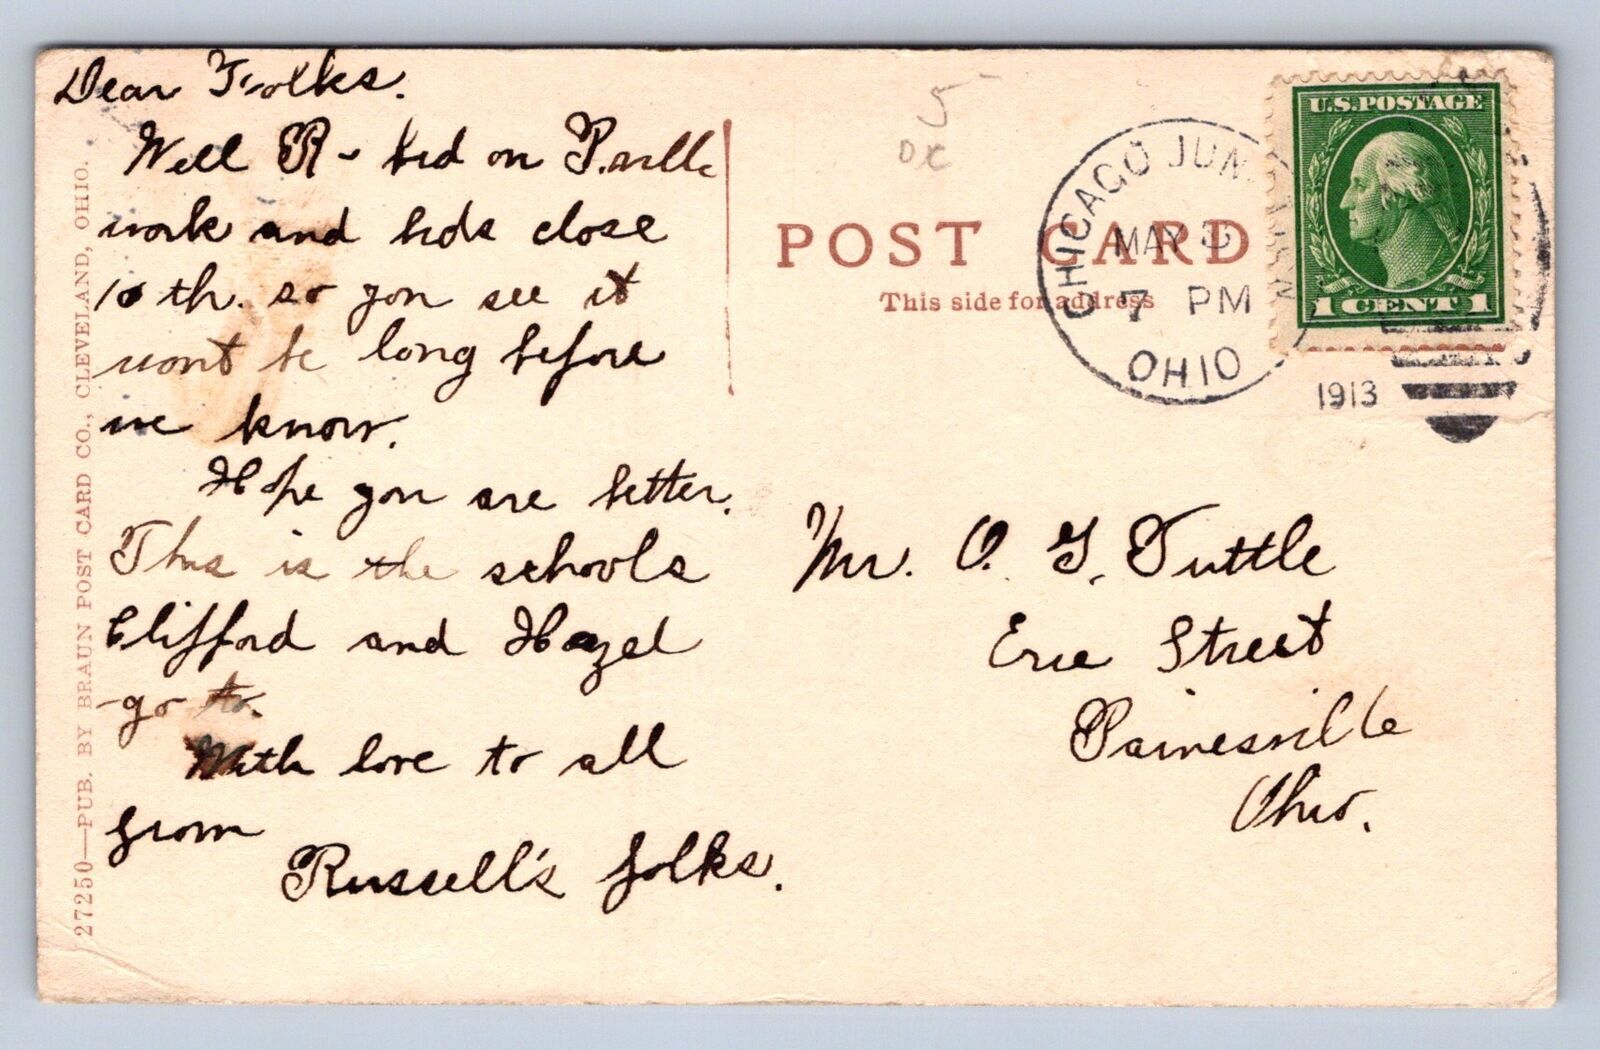 Dear Folks.
Well R - bid on P.ville
work and bids close
10 th. so you see it
wont be long before
we know.
Hope you are better.
This is the schools
Clifford and Hazel
go to.
With love to all
from
Russell's folks.
27250—PUB. BY BRAUN POST CARD CO., CLEVELAND, OHIO.
5
POST CARD
This side for address
CHICAGO JUN.
MAY
7 PM
OHIO
1913
U.S. POSTAGE
1 CENT 1
Mr. O. G. Tuttle
Erie Street
Painesville
Ohio.